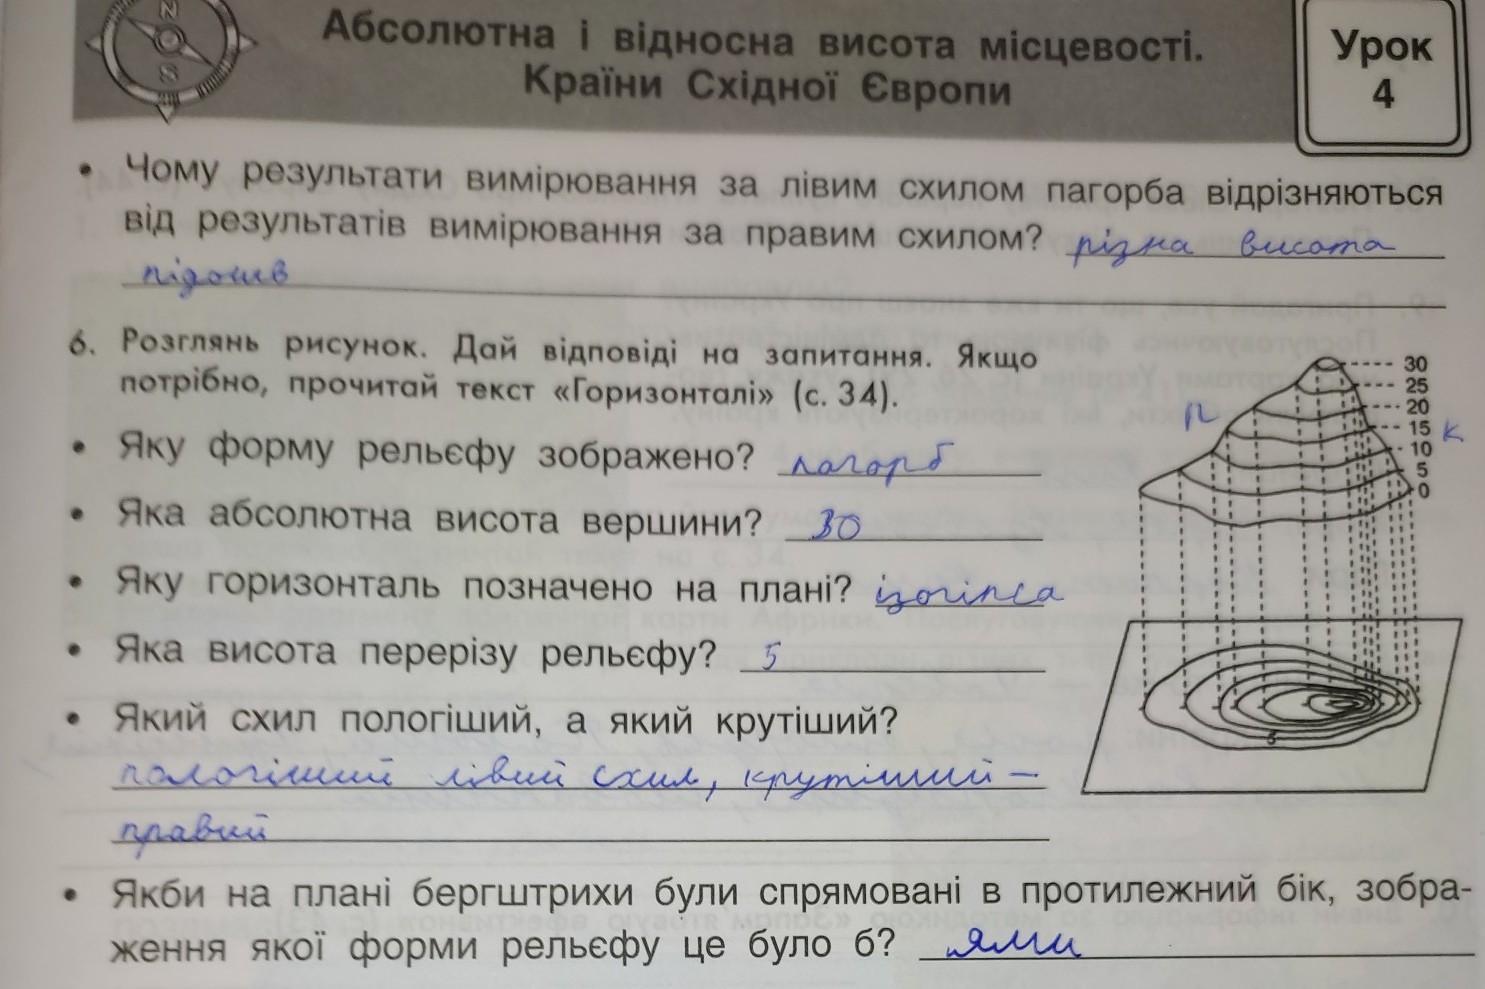 Абсолютна і відносна висота місцевості.
Країни Східної Європи
Урок
4
N
S
• Чому результати вимірювання за лівим схилом пагорба відрізняються
від результатів вимірювання за правим схилом? різна висота
підошв
6. Розглянь рисунок. Дай відповіді на запитання. Якщо
потрібно, прочитай текст «Горизонталі» (с. 34).
• Яку форму рельєфу зображено? пагорб
• Яка абсолютна висота вершини? 30
• Яку горизонталь позначено на плані? ізогіпса
• Яка висота перерізу рельєфу? 5
• Який схил пологіший, а який крутіший?
пологіший лівий схил, крутіший –
правий
30
25
20
п 15 к
10
5
0
5
• Якби на плані бергштрихи були спрямовані в протилежний бік, зобра-
ження якої форми рельєфу це було б? ями